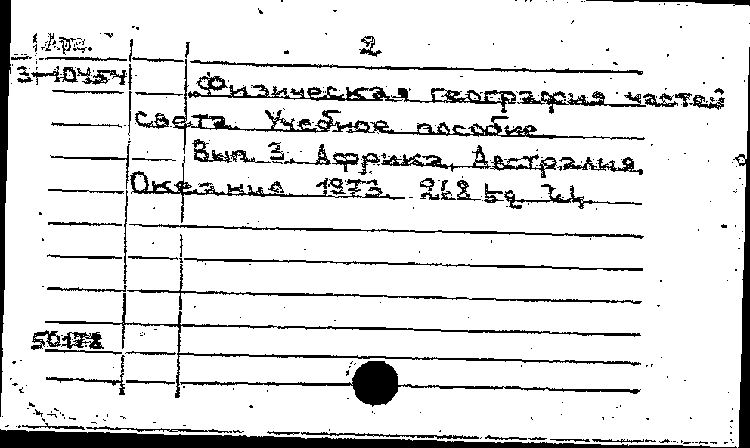 2
3-10454
Физическая география частей
света. Учебное пособие
Вып. 3. Африка, Австралия,
Океания 1973. 268 էջ.
50172